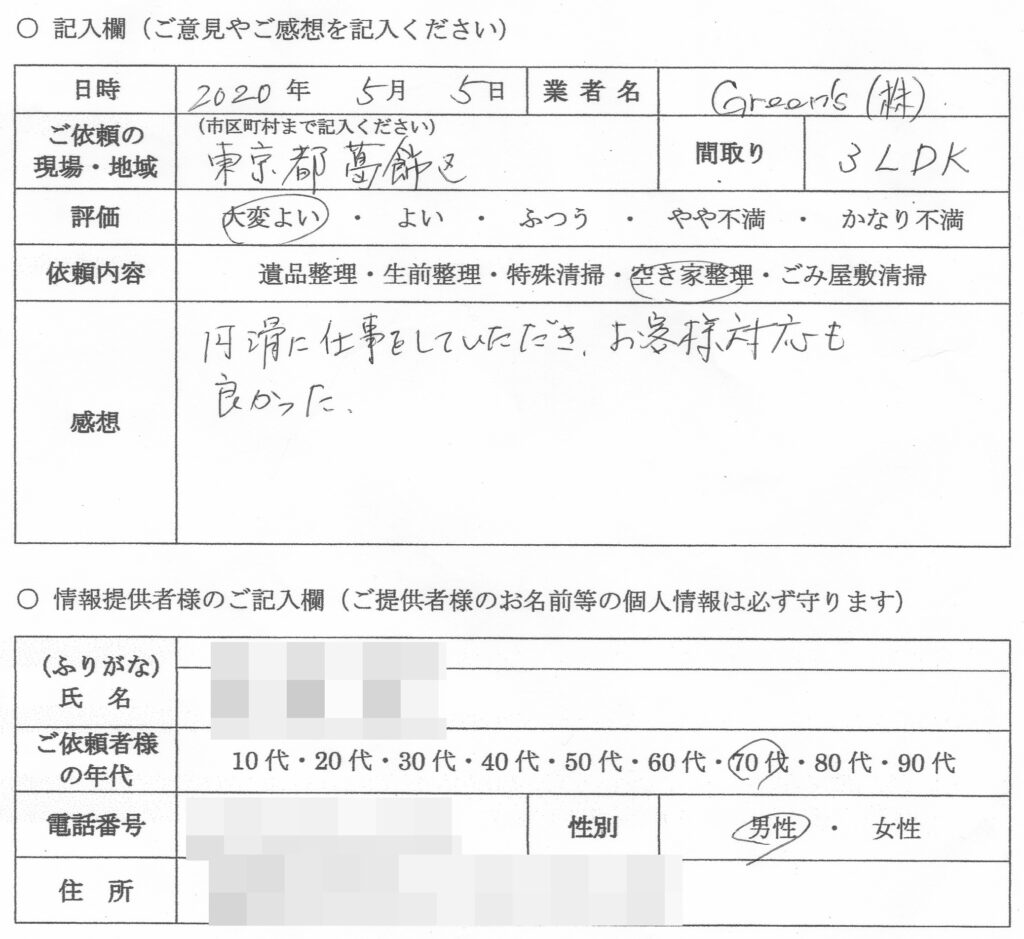 ○ 記入欄（ご意見やご感想を記入ください）
日時 2020年 5月 5日 業者名 Green's (株)
ご依頼の現場・地域 (市区町村まで記入ください) 東京都葛飾区 間取り 3LDK
評価 大変よい ・ よい ・ ふつう ・ やや不満 ・ かなり不満
依頼内容 遺品整理・生前整理・特殊清掃・空き家整理・ごみ屋敷清掃
感想 円滑に仕事をしていただき、お客様対応も
良かった、
○ 情報提供者様のご記入欄（ご提供者様のお名前等の個人情報は必ず守ります）
（ふりがな）
氏 名
ご依頼者様の年代 10代・20代・30代・40代・50代・60代・70代・80代・90代
電話番号 性別 男性 ・ 女性
住 所